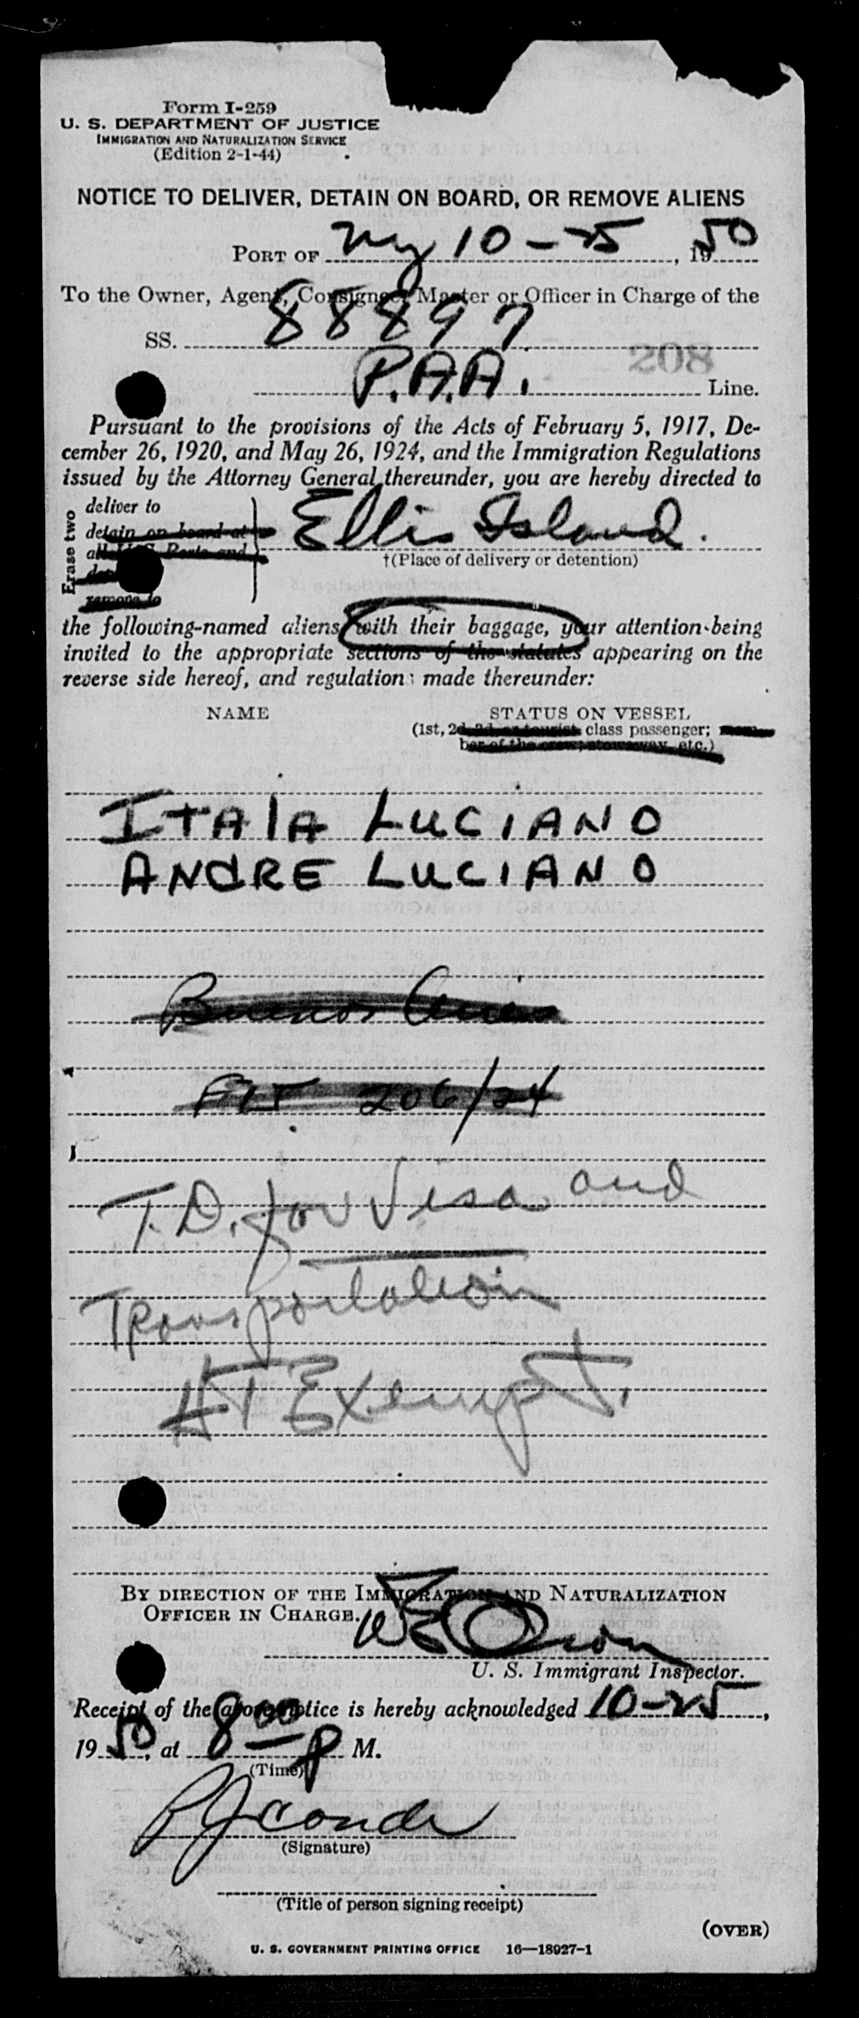 Form I-259
U. S. DEPARTMENT OF JUSTICE
IMMIGRATION AND NATURALIZATION SERVICE
(Edition 2-1-44)
NOTICE TO DELIVER, DETAIN ON BOARD, OR REMOVE ALIENS
PORT OF NY 10-25, 1950
To the Owner, Agent, Consignee, Master or Officer in Charge of the
SS. 88897
208
P.A.A. Line.
Pursuant to the provisions of the Acts of February 5, 1917, De-
cember 26, 1920, and May 26, 1924, and the Immigration Regulations
issued by the Attorney General thereunder, you are hereby directed to
Erase two
deliver to
detain on board at
all U.S. Ports and
remove to
Ellis Island.
†(Place of delivery or detention)
the following-named aliens with their baggage, your attention being
invited to the appropriate sections of the statutes appearing on the
reverse side hereof, and regulations made thereunder:
NAME STATUS ON VESSEL
(1st, 2d, 3d, or tourist class passenger; mem-
ber of the crew, stowaway, etc.)
ITALA LUCIANO
ANDRE LUCIANO
Buenos Aires
206/24
T.D. for Visa and
Transportation
HT Exempt.
BY DIRECTION OF THE IMMIGRATION AND NATURALIZATION
OFFICER IN CHARGE.
U. S. Immigrant Inspector.
Receipt of the above notice is hereby acknowledged 10-25,
1950, at 8 00 P M.
(Time)
(Signature)
(Title of person signing receipt)
(OVER)
U. S. GOVERNMENT PRINTING OFFICE 16—18927-1